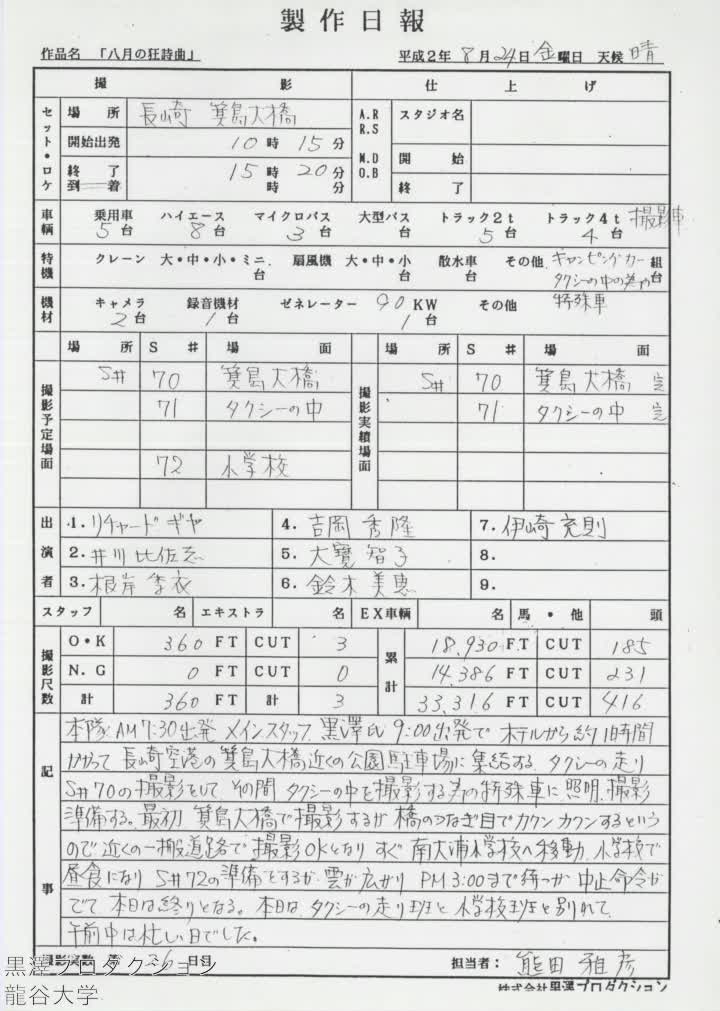 製作日報
作品名 「八月の狂詩曲」 平成2年 8月 24日 金曜日 天候 晴
撮影 仕上げ
セット・ロケ 場所 長崎 箕島大橋 A.R R.S スタジオ名
開始出発 10時 15分 M.D O.B 開始
終了 到着 15時 20分 時 分 終了
車輌 乗用車 ハイエース マイクロバス 大型バス トラック2t トラック4t 撮影車
5台 8台 3台 台 5台 4台
特機 クレーン 大・中・小・ミニ 扇風機 大・中・小 散水車 その他 キャンピングカー 組
台 台 台 タクシーの中の為の
機材 キャメラ 録音機材 ゼネレーター 90KW その他 特殊車
2台 1台 1台
撮影予定場面 場所 S# 場面 撮影実績場面 場所 S# 場面
S# 70 箕島大橋 S# 70 箕島大橋 完
71 タクシーの中 71 タクシーの中 完
72 小学校
出演者 1. リチャードギヤ 4. 吉岡秀隆 7. 伊崎充則
2. 井川比佐志 5. 大寶智子 8.
3. 根岸季衣 6. 鈴木美恵 9.
スタッフ 名 エキストラ 名 EX車輌 名 馬・他 頭
撮影尺数 O・K 360 FT CUT 3 累計 18,930 FT CUT 185
N.G 0 FT CUT 0 14,386 FT CUT 231
計 360 FT 計 3 33,316 FT CUT 416
記事 本隊AM7:30出発 メインスタッフ、黒澤氏 9:00出発で ホテルから約1時間
かかって 長崎空港の箕島大橋近くの公園駐車場に集結する。タクシーの走り
S#70の撮影をして、その間 タクシーの中を撮影する為の特殊車に照明、撮影
準備する。最初 箕島大橋で撮影するが 橋のつなぎ目でガクンガクンするという
ので近くの一般道路で撮影OKとなり すぐ 南大浦小学校へ移動、小学校で
昼食になり S#72の準備をするが、雲が広がり PM3:00まで待つが 中止命令が
でて 本日は終りとなる。本日は、タクシーの走り班と小学校班と別れて、
午前中は忙しい日でした。
撮影実数 第 26日目 担当者: 熊田雅彦
株式会社黒澤プロダクション
黒澤プロダクション
龍谷大学